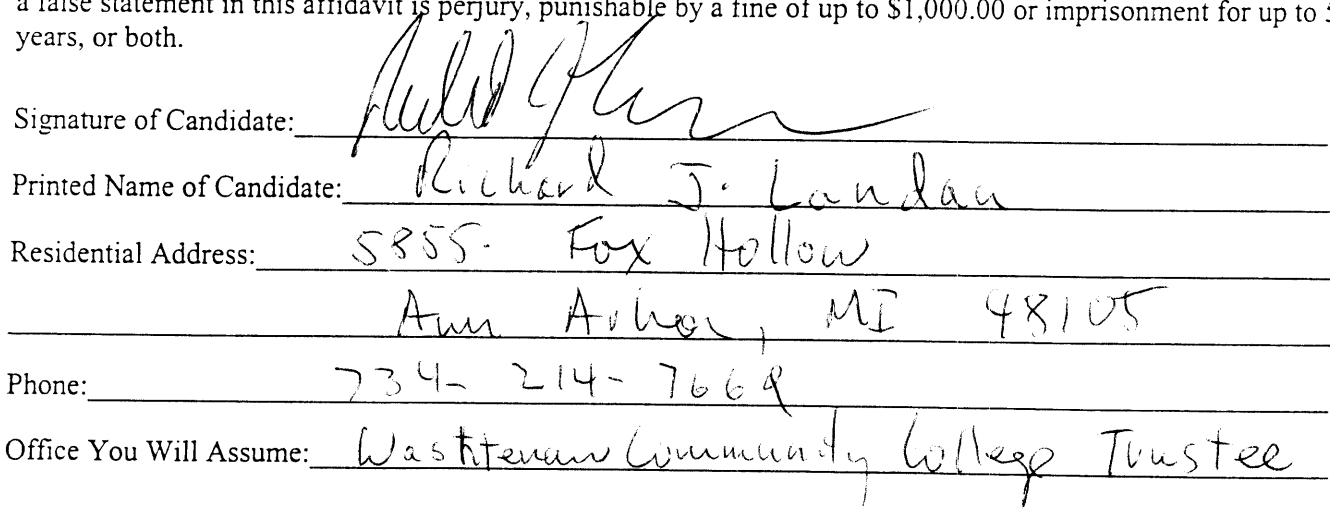 a false statement in this affidavit is perjury, punishable by a fine of up to $1,000.00 or imprisonment for up to
years, or both.
Signature of Candidate:
Printed Name of Candidate: Richard J. Landau
Residential Address: 5855 Fox Hollow
Ann Arbor, MI 48105
Phone: 734-214-7669
Office You Will Assume: Washtenaw Community College Trustee